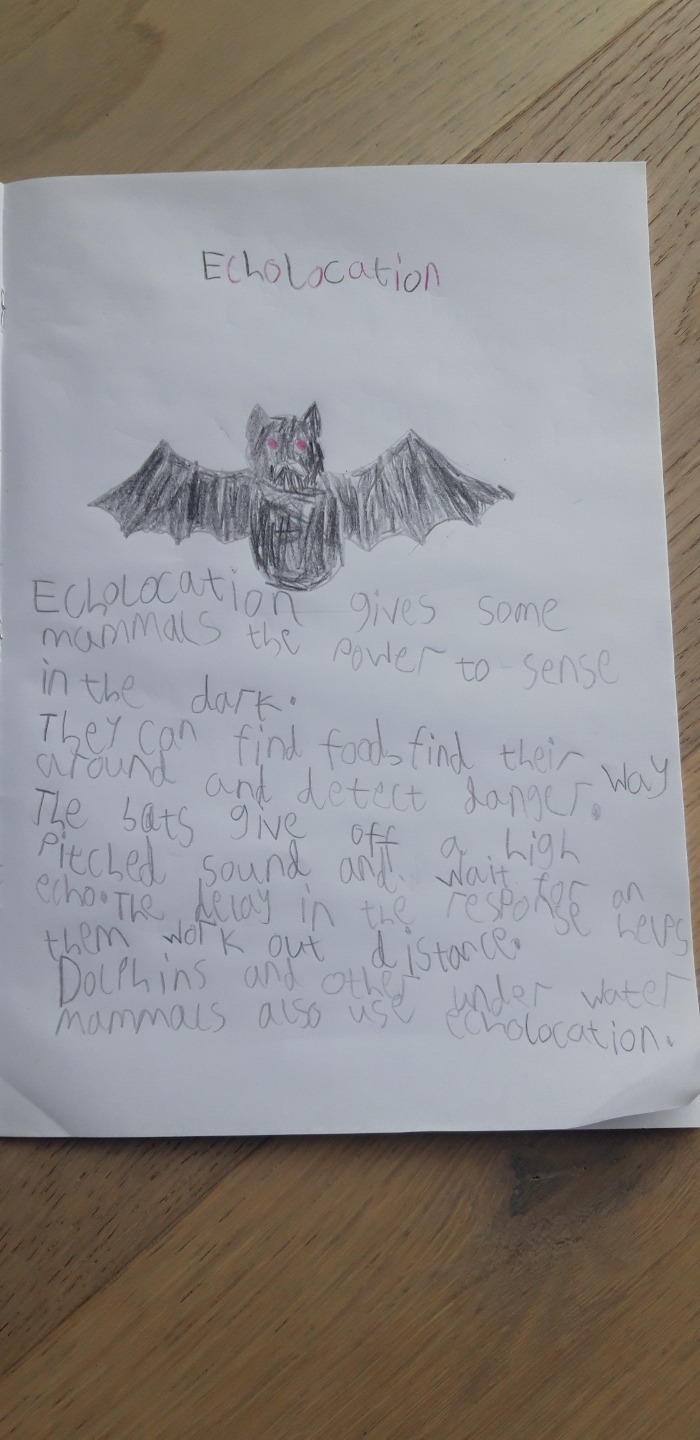 Echolocation
Echolocation gives some
mammals the power to sense
in the dark.
They can find food, find their way
around and detect danger.
The bats give off a high
Pitched sound and wait for an
echo. The delay in the response helps
them work out distance.
Dolphins and other under water
mammals also use echolocation.